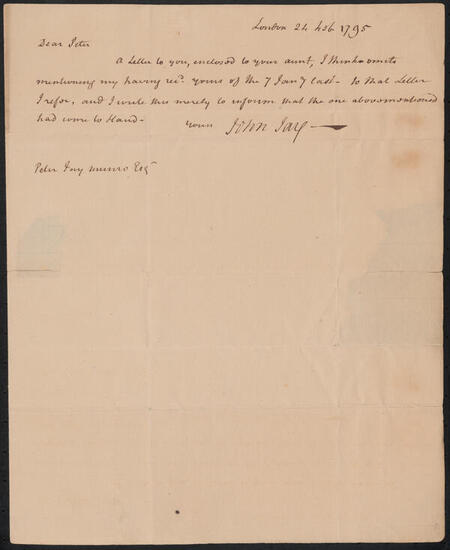 London 24 Feb 1795
Dear Peter
A Letter to you, enclosed to your aunt, I think omits
mentioning my having recd. yours of the 7 Jany last - to that Letter
I refer, and I write this merely to inform that the one abovementioned
had come to Hand -
Yours John Jay
Peter Jay Munro Esqr